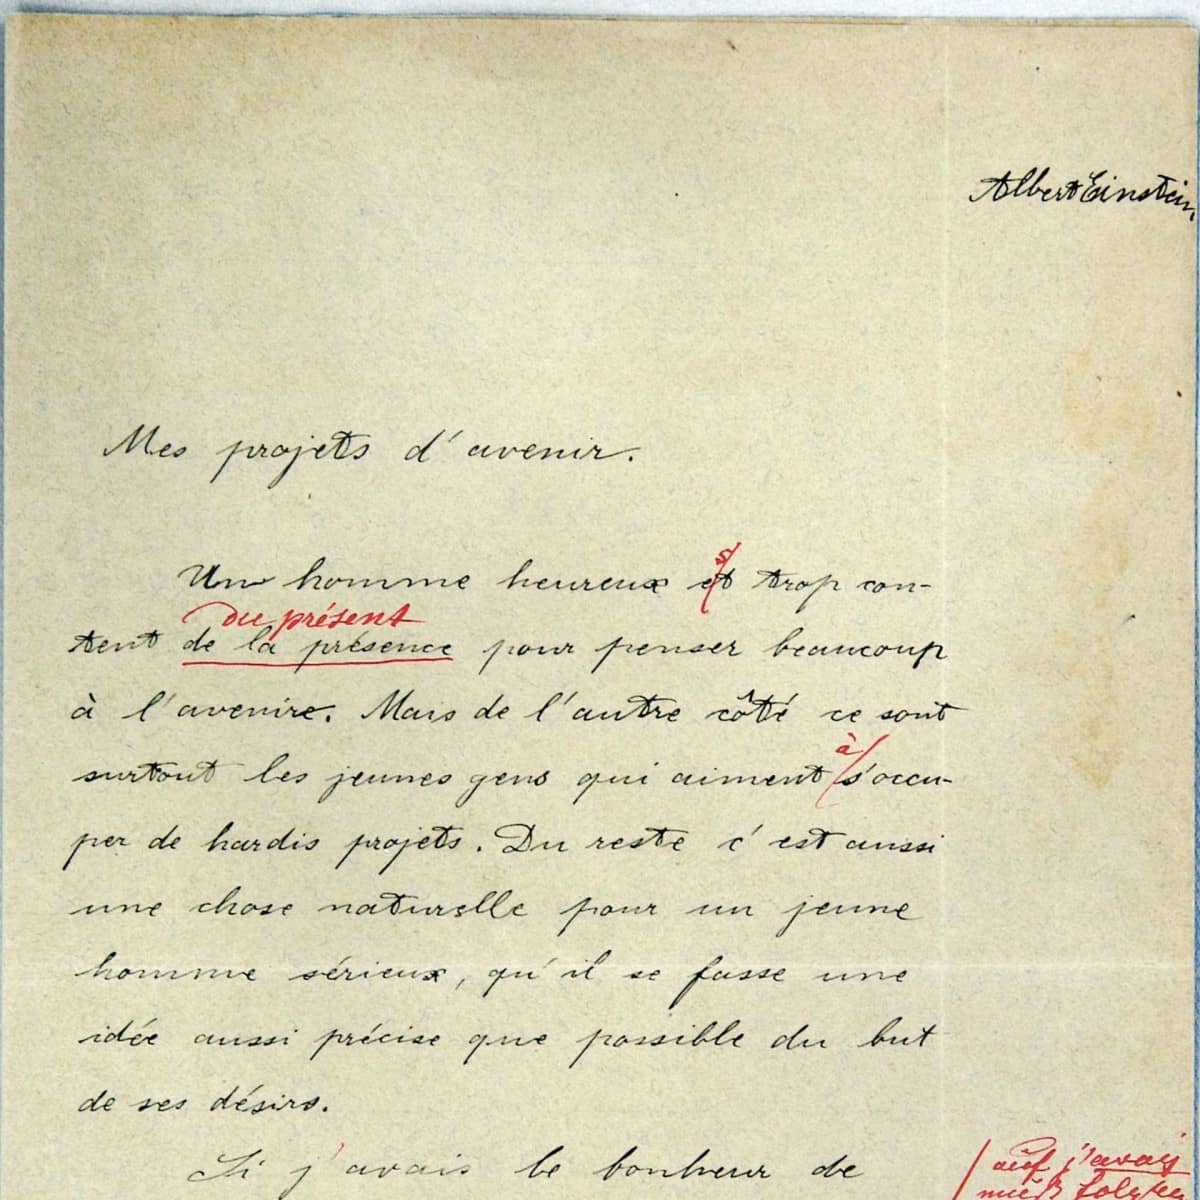 Albert Einstein
Mes projets d'avenir.
s
Un homme heureux et trop con-
du présent
tent de la présence pour penser beaucoup
à l'avenire. Mais de l'autre côté ce sont
à
surtout les jeunes gens qui aiment s'occu-
per de hardis projets. Du reste c'est aussi
une chose naturelle pour un jeune
homme sérieux, qu'il se fasse une
idée aussi précise que possible du but
de ses désirs.
Si j'avais le bonheur de
auf j'avais
muß folgen